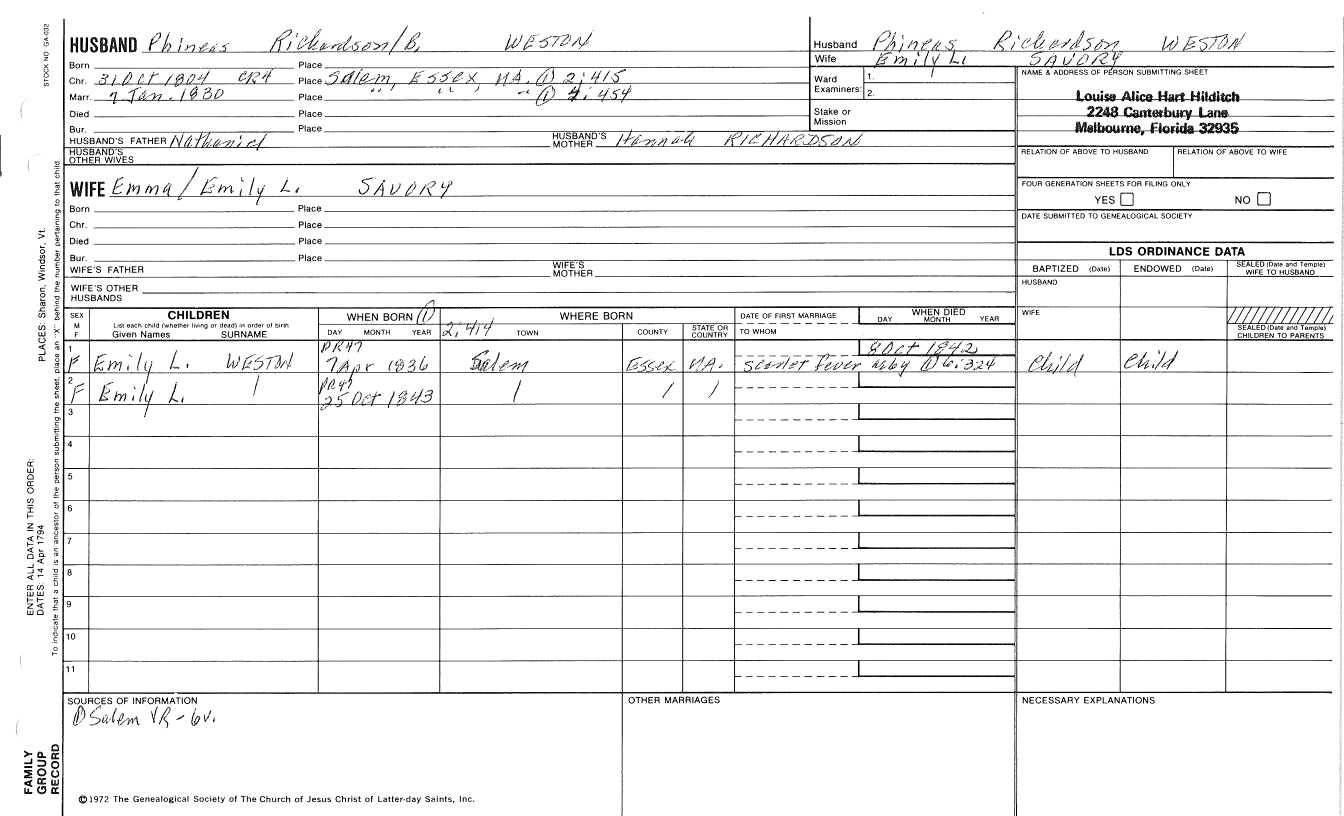 STOCK NO GA-032
HUSBAND Phineas Richardson/B. WESTON
Born Place
Chr. 31 Oct 1804 CR4 Place Salem, Essex, MA. ① 2:415
Marr. 7 Jan. 1830 Place " , " , " ① 4:454
Died Place
Bur. Place
HUSBAND'S FATHER Nathaniel HUSBAND'S MOTHER Hannah RICHARDSON
HUSBAND'S OTHER WIVES
WIFE Emma/Emily L. SAVORY
Born Place
Chr. Place
Died Place
Bur. Place
WIFE'S FATHER WIFE'S MOTHER
WIFE'S OTHER HUSBANDS
Husband Phineas Richardson WESTON
Wife Emily L. SAVORY
Ward Examiners: 1. 2.
Stake or Mission
NAME & ADDRESS OF PERSON SUBMITTING SHEET
Louise Alice Hart Hilditch
2248 Canterbury Lane
Melbourne, Florida 32935
RELATION OF ABOVE TO HUSBAND RELATION OF ABOVE TO WIFE
FOUR GENERATION SHEETS FOR FILING ONLY
YES NO
DATE SUBMITTED TO GENEALOGICAL SOCIETY
LDS ORDINANCE DATA
BAPTIZED (Date) ENDOWED (Date) SEALED (Date and Temple) WIFE TO HUSBAND
HUSBAND
WIFE
SEALED (Date and Temple) CHILDREN TO PARENTS
SEX M F
CHILDREN
List each child (whether living or dead) in order of birth
Given Names SURNAME
WHEN BORN ①
DAY MONTH YEAR
2:414
WHERE BORN
TOWN COUNTY STATE OR COUNTRY
DATE OF FIRST MARRIAGE
TO WHOM
WHEN DIED
DAY MONTH YEAR
1 PR47 8 Oct 1842
F Emily L. WESTON 7 Apr 1836 Salem Essex MA. scarlet fever ① 6:324 Child Child
2 PR47
F Emily L. 25 Oct 1843
3
4
5
6
7
8
9
10
11
SOURCES OF INFORMATION
① Salem VR - 6v.
OTHER MARRIAGES
NECESSARY EXPLANATIONS
©1972 The Genealogical Society of The Church of Jesus Christ of Latter-day Saints, Inc.
FAMILY
GROUP
RECORD
ENTER ALL DATA IN THIS ORDER:
DATES: 14 Apr 1794
PLACES: Sharon, Windsor, Vt.
To indicate that a child is an ancestor of the person submitting the sheet, place an "X" behind the number pertaining to that child.